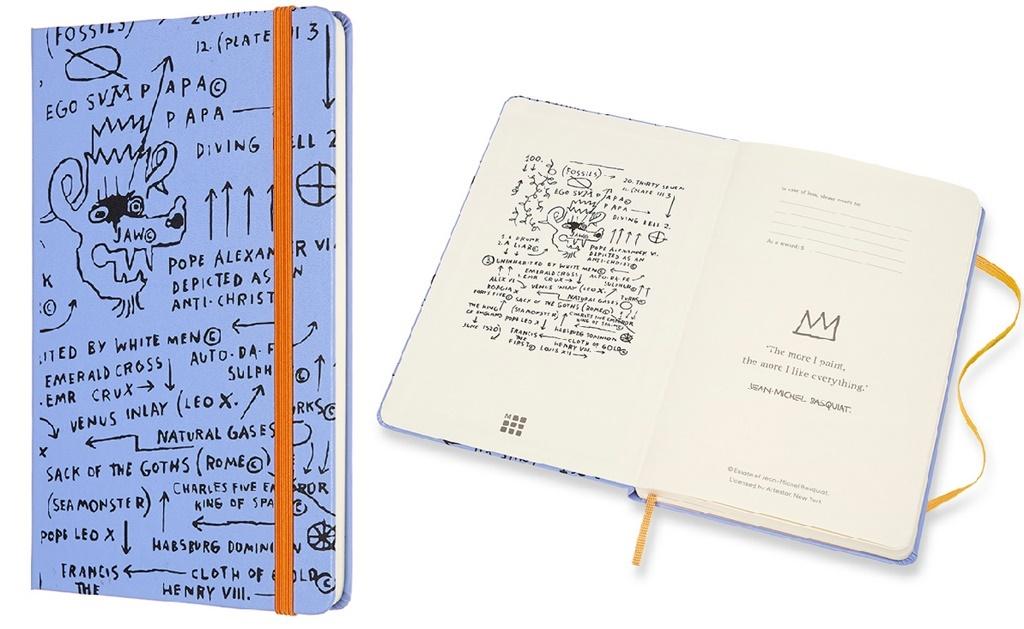 (FOSSILS)
12. (PLATE III 3
EGO SVM PAPA©
PAPA
DIVING BELL 2
JAW©
POPE ALEXANDER VI.
DEPICTED AS AN
ANTI-CHRIST
ITED BY WHITE MEN©
AUTO-DA-F
EMERALD CROSS
SULPH
EMR CRUX→
VENUS INLAY (LEO X.
RKS©
NATURAL GASES
SACK OF THE GOTHS (ROME©)
(SEA MONSTER)
CHARLES FIVE EMPEROR
KING OF SPA
POPE LEO X
HABSBURG DOMINION
FRANCIS ← CLOTH OF GOLD©
THE
HENRY VIII.
100.
(FOSSILS)
20. THIRTY SEVEN
EGO SVM PAPA©
PAPA
DIVING BELL 2.
POPE ALEXANDER VI.
DEPICTED AS AN
ANTI-CHRIST©
2. A LIAR©
UNINHABITED BY WHITE MEN©
AUTO-DA-FE
EMERALD CROSS
SULPHUR
EMR CRUX→
ALEX VI
VENUS INLAY (LEO X.
TURKS©
BORGIA
NATURAL GASES
SACK OF THE GOTHS (ROME©)
THE KING
OF ENGLAND
(SEA MONSTER)
CHARLES FIVE EMPEROR
KING OF SPAIN
POPE LEO X
HABSBURG DOMINION
JUNE 1520)
FRANCIS
THE
FIRST©
← CLOTH OF GOLD©
HENRY VIII.
LOUIS XII→
M
In case of loss, please return to:
As a reward: $
'The more I paint,
the more I like everything.'
JEAN-MICHEL BASQUIAT.
© Estate of Jean-Michel Basquiat.
Licensed by Artestar, New York